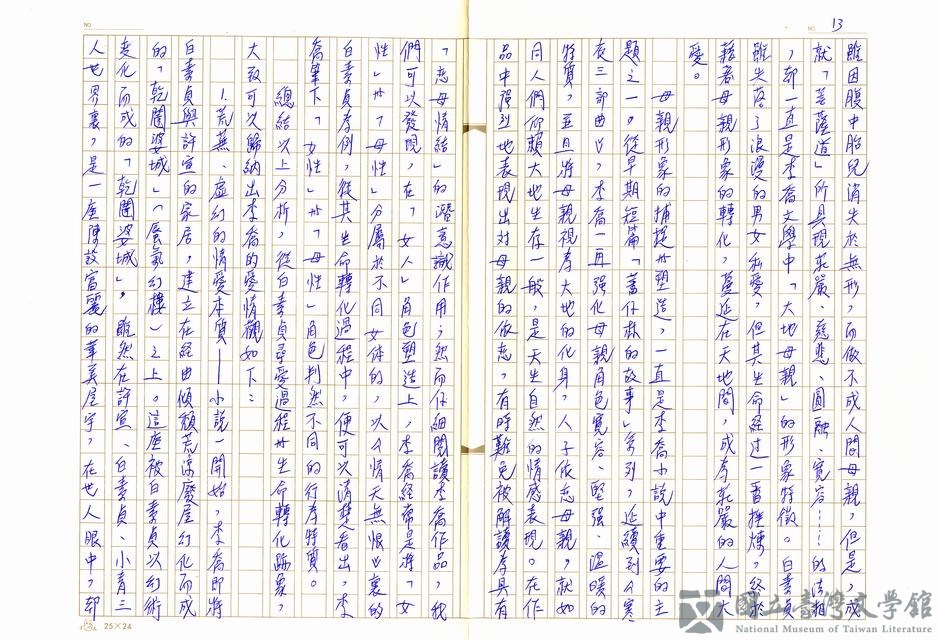 13
雖因腹中胎兒消失於無形,而做不成人間母親,但是,成
就「菩薩道」所具現莊嚴、慈悲、圓融、寬容……的法相
,卻一直是李喬文學中「大地母親」的形象特徵。白素貞
雖失落了浪漫的男女私愛,但其生命經過一番捶煉,終於
藉著母親形象的轉化,蔓延在天地間,成為莊嚴的人間大
愛。
母親形象的捕捉與塑造,一直是李喬小說中重要的主
題之一。從早期短篇「蕃仔林的故事」系列,延續到《寒
夜三部曲》,李喬一再強化母親角色寬容、堅強、溫暖的
特質,並且將母親視為大地的化身,人子依戀母親,就如
同人們仰賴大地生存一般,是天生自然的情感表現。在作
品中強烈地表現出對母親的依戀,有時難免被解讀為具有
「戀母情結」的潛意識作用;然而仔細閱讀李喬作品,我
們可以發現,在「女人」角色塑造上,李喬經常是將「女
性」與「母性」分屬於不同女體的,以《情天無恨》裏的
白素貞為例,從其生命轉化過程中,便可以清楚看出,李
喬筆下「女性」與「母性」角色判然不同的行為特質。
總結以上分析,從白素貞尋愛過程與生命轉化跡象,
大致可以歸納出李喬的愛情觀如下:
1.荒蕪、虛幻的情愛本質——小說一開始,李喬即將
白素貞與許宣的家居,建立在經由傾頹荒涼廢屋幻化而成
的「乾闥婆城」(蜃氣幻樓)之上。這座被白素貞以幻術
變化而成的「乾闥婆城」,雖然在許宣、白素貞、小青三
人世界裏,是一座陳設富麗的華美屋宇,在世人眼中,卻
NO.
NO.
25×24
國立臺灣文學館
National Museum of Taiwan Literature